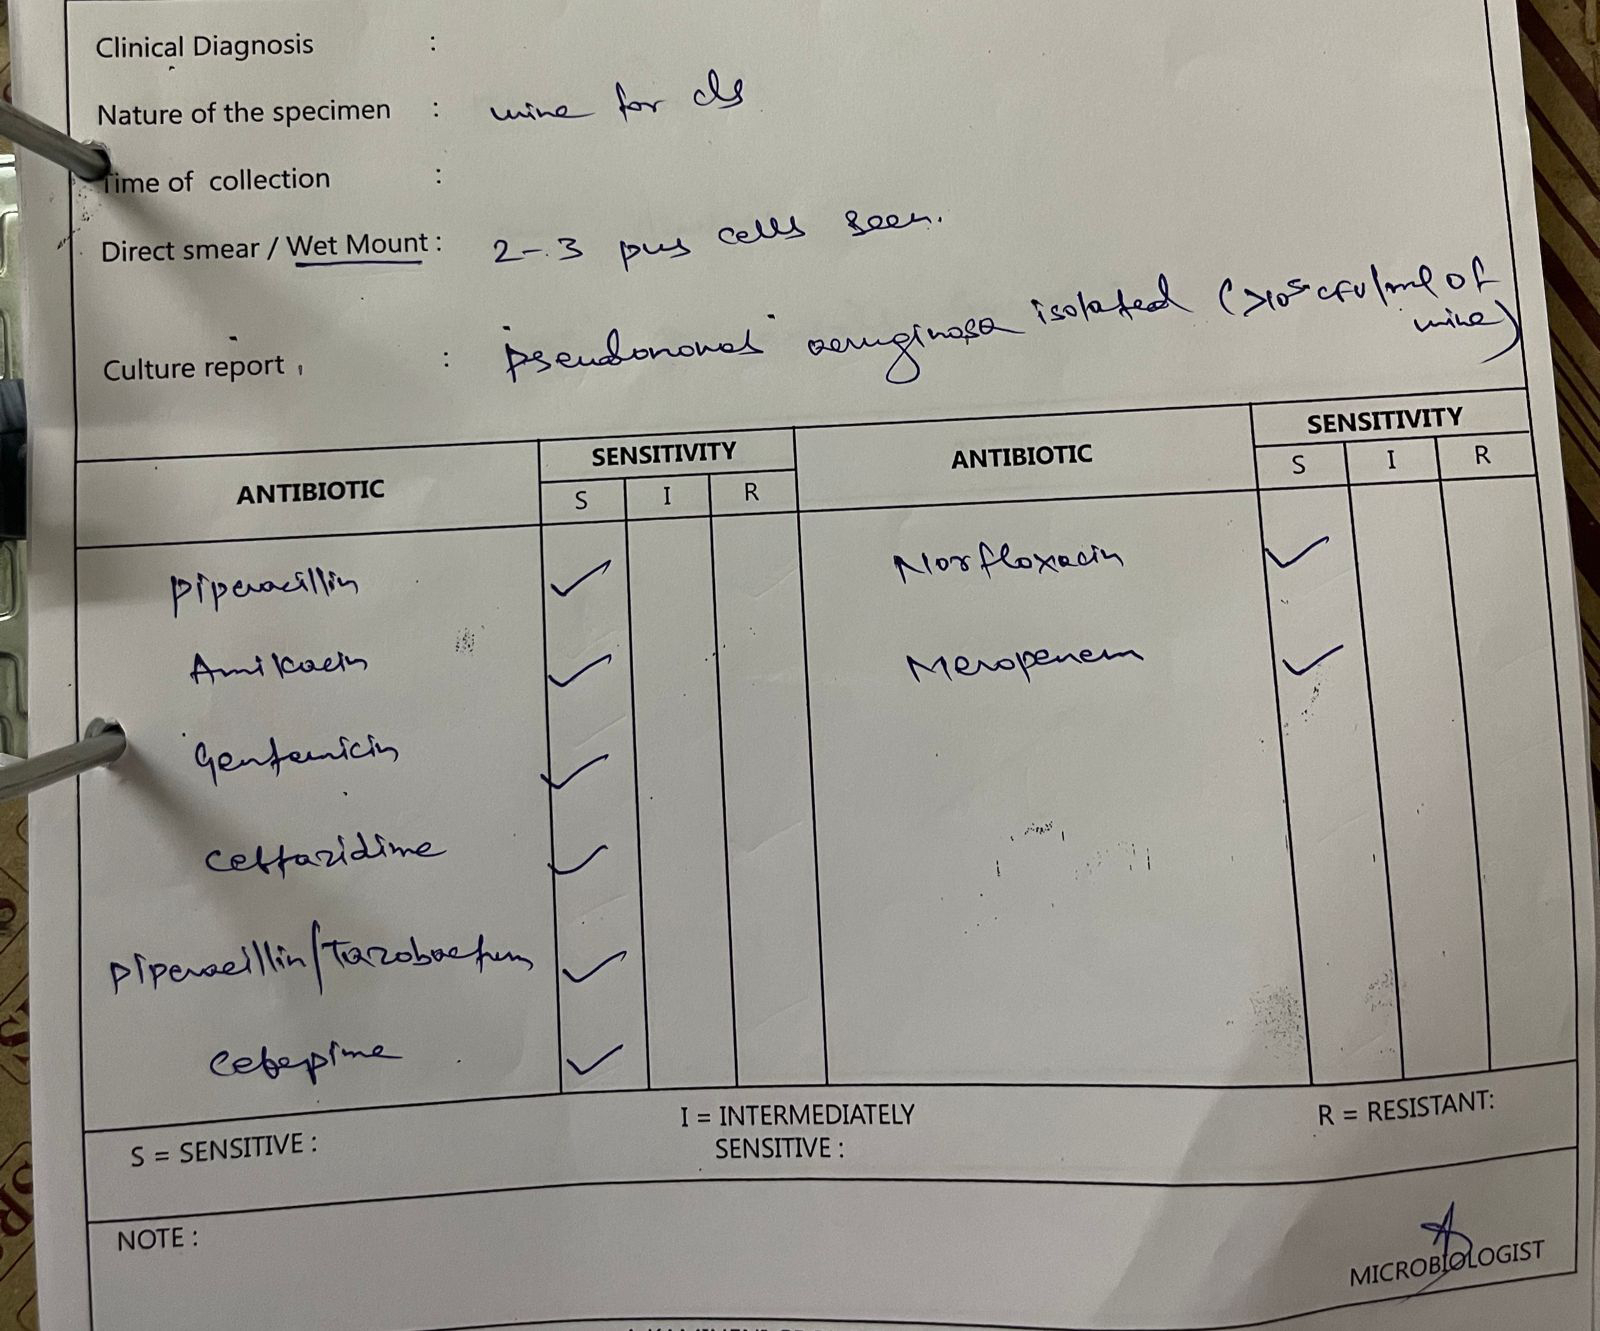 Clinical Diagnosis :
Nature of the specimen : urine for c/s
Time of collection :
Direct smear / Wet Mount : 2-3 pus cells seen.
Culture report : Pseudomonas aeruginosa isolated (>10⁵ CFU/ml of
urine)
ANTIBIOTIC SENSITIVITY ANTIBIOTIC SENSITIVITY
S I R S I R
Piperacillin ✓ Norfloxacin ✓
Amikacin ✓ Meropenem ✓
Gentamicin ✓
Ceftazidime ✓
Piperacillin/Tazobactum ✓
Cefepime ✓
S = SENSITIVE : I = INTERMEDIATELY R = RESISTANT:
SENSITIVE :
NOTE :
MICROBIOLOGIST